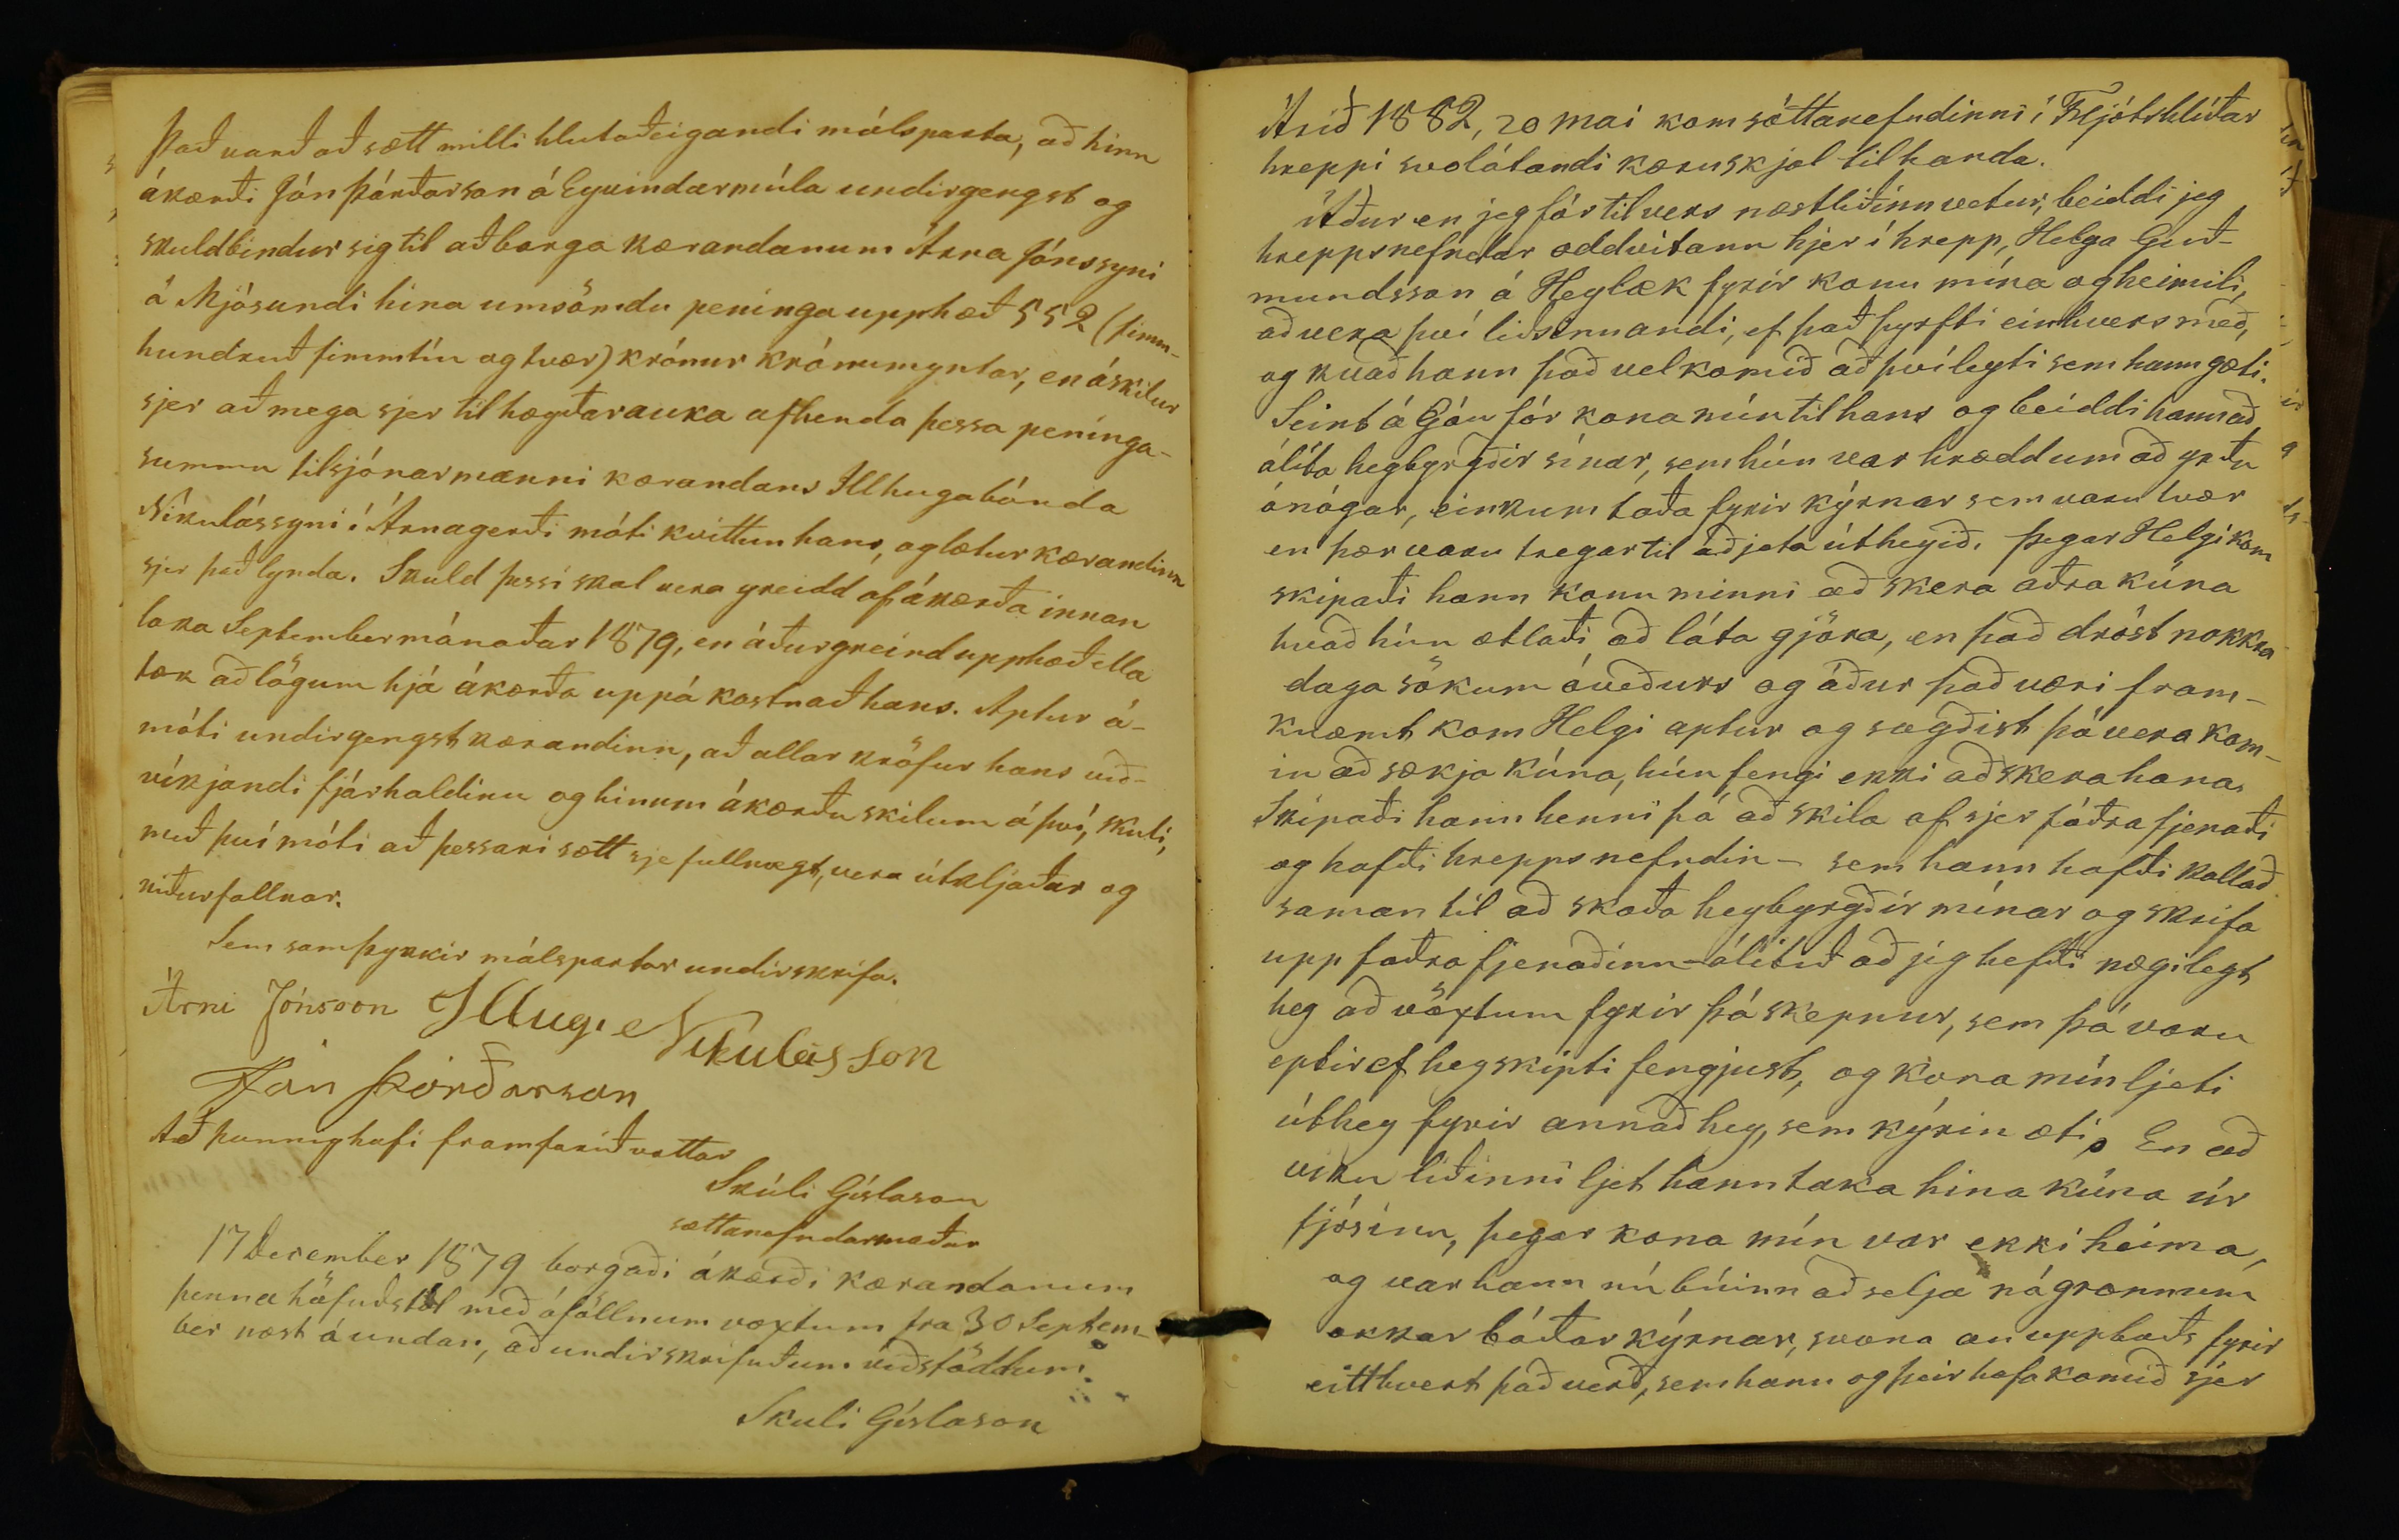 Það varð að sætt milli hlutaðeigandi málsparta, að hinn
ákærði Jón Þórðarson á Eyvindarmúla undirgengst og
skuldbindur sig til að borga kærandanum Árna Jónssyni
á Mjósundi hina umsömdu peninga upphæð 552 (fimm-
hundruð fimmtíu og tvær) krónur krónumyntar, en áskilur
sjer að mega sjer til hægðarauka afhenda þessa peninga-
summu tilsjónarmanni kærandans Illhuga bónda
Nikulássyni í Árnagerði móti kvittun hans, og lætur kærandinn
sjer það lynda. Skuld þessi skal vera greidd af ákærða innan
loka September mánaðar 1879, en áðurgreind upphæð ella
tæk að lögum hjá ákærða uppá kostnað hans. Aptur á-
móti undirgengst kærandinn, að allar kröfur hans við-
víkjandi fjárhaldinu og hinum ákærðu skilum á því, skuli,
með því móti að þessari sætt sje fullnægt, vera útkljáðar og
niðurfallnar.
Sem samþykkir málspartar undirskrifa.
Árni Jónsson Illugi Nikulásson
Jón Þórðarson
Að þannig hafi framfarið vottar
Skúli Gíslason
sættanefndarmaður
17 December 1879 borgaði ákærði kærandanum
þenna höfuðstól með áföllnum vöxtum fra 30 Septem-
ber næst á undan, að undirskrifuðum viðstöddum.
Skuli Gíslason
Árið 1882, 20 mai kom sáttanefndinni í Fljótshlíðar
hreppi svolátandi kæruskjal til handa.
Áður en jeg fór til vers næstliðinn vetur, beiddi jeg
hreppsnefndar oddvitann hjer í hrepp, Helga Guð-
mundsson á Heylæk fyrir konu mína og heimili,
að vera því liðsinnandi, ef það þyrfti einhvers með,
og kvað hann það velkomið að því leyti sem hann gæti.
Seint á Góu fór kona mín til hans og beiddi hann að
álíta heybyrgðir sínar, sem hún var hrædd um að yrðu
ónógar, einkum taða fyrir kýrnar sem voru tvær
en þær voru tregar til að jeta útheyið. Þegar Helgi kom
skipaði hann konu minni að skera aðra kúna
hvað hún ætlaði að láta gjöra, en það dróst nokkra
daga sökum óveðurs og áður það væri fram-
kvæmt kom Helgi aptur og sagðist þá vera kom-
in að sækja kúna, hún fengi ekki að skera hana.
Skipaði hann henni þá að skila af sjer fóðrafjenaði
og hafði hreppsnefndin - sem hann hafði kallað
saman til að skoða heybyrgðir mínar og skrifa
upp foðrafjenaðinn - álitið að jeg hefði nægilegt
hey að vöxtum fyrir þá skepnur, sem þá voru
eptir ef heyskipti fengjust, og kona mín ljeti
úthey fyrir annað hey, sem kýrin æti. En að
viku liðinni ljet hann taka hina kúna úr
fjósinu, þegar kona mín var ekki heima,
og var hann nú búinn að selja nágrönnum
okkar báðar kýrnar, svona án uppboðs fyrir
eitthvert það verð, sem hann og þeir hafa komið sjer